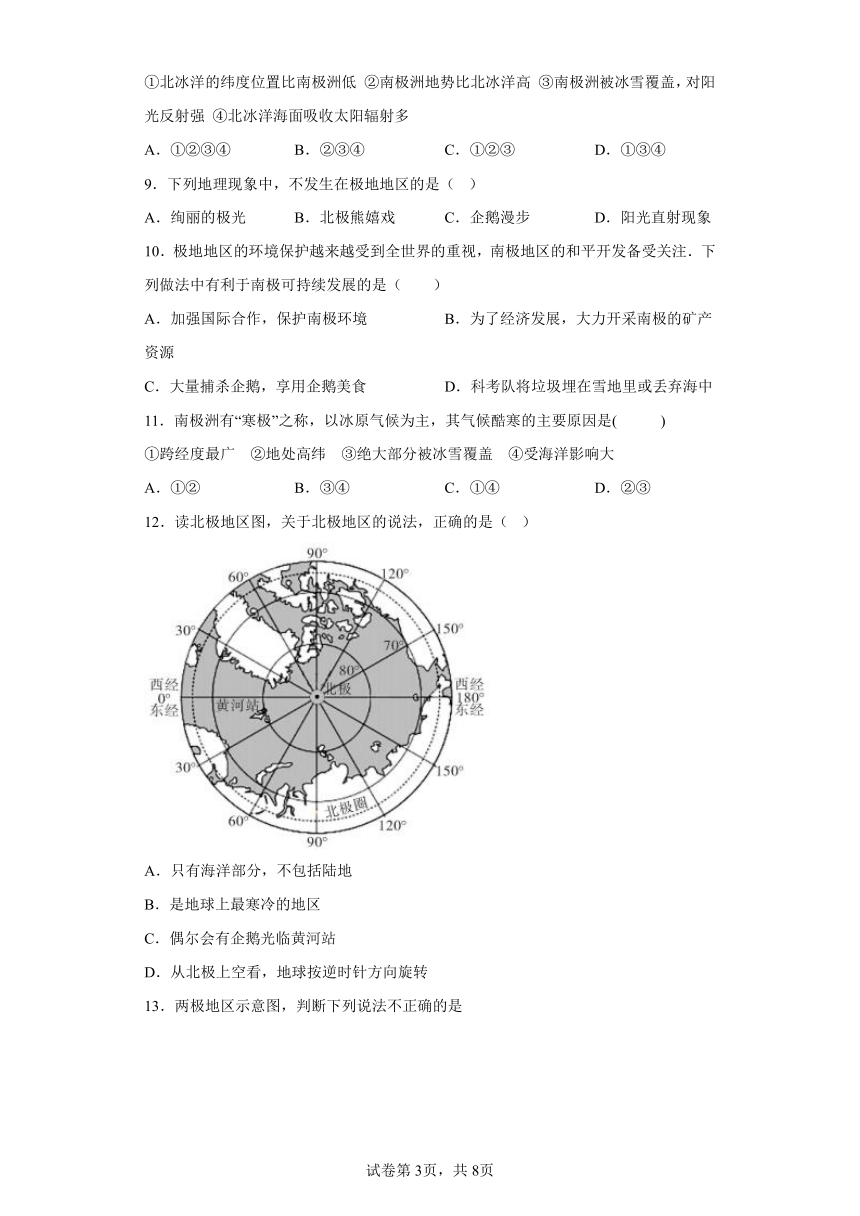 ①北冰洋的纬度位置比南极洲低 ②南极洲地势比北冰洋高 ③南极洲被冰雪覆盖，对阳
光反射强 ④北冰洋海面吸收太阳辐射多
A．①②③④ B．②③④ C．①②③ D．①③④
9．下列地理现象中，不发生在极地地区的是（ ）
A．绚丽的极光 B．北极熊嬉戏 C．企鹅漫步 D．阳光直射现象
10．极地地区的环境保护越来越受到全世界的重视，南极地区的和平开发备受关注．下
列做法中有利于南极可持续发展的是（ ）
A．加强国际合作，保护南极环境 B．为了经济发展，大力开采南极的矿产
资源
C．大量捕杀企鹅，享用企鹅美食 D．科考队将垃圾埋在雪地里或丢弃海中
11．南极洲有“寒极”之称，以冰原气候为主，其气候酷寒的主要原因是( )
①跨经度最广 ②地处高纬 ③绝大部分被冰雪覆盖 ④受海洋影响大
A．①② B．③④ C．①④ D．②③
12．读北极地区图，关于北极地区的说法，正确的是（ ）
90°
60° 120°
30° 150°
70°
80°
西经 北极 西经
0° 黄河站 180°
东经 东经
30° 150°
北极圈
60° 120°
90°
A．只有海洋部分，不包括陆地
B．是地球上最寒冷的地区
C．偶尔会有企鹅光临黄河站
D．从北极上空看，地球按逆时针方向旋转
13．两极地区示意图，判断下列说法不正确的是
试卷第 3页，共 8页